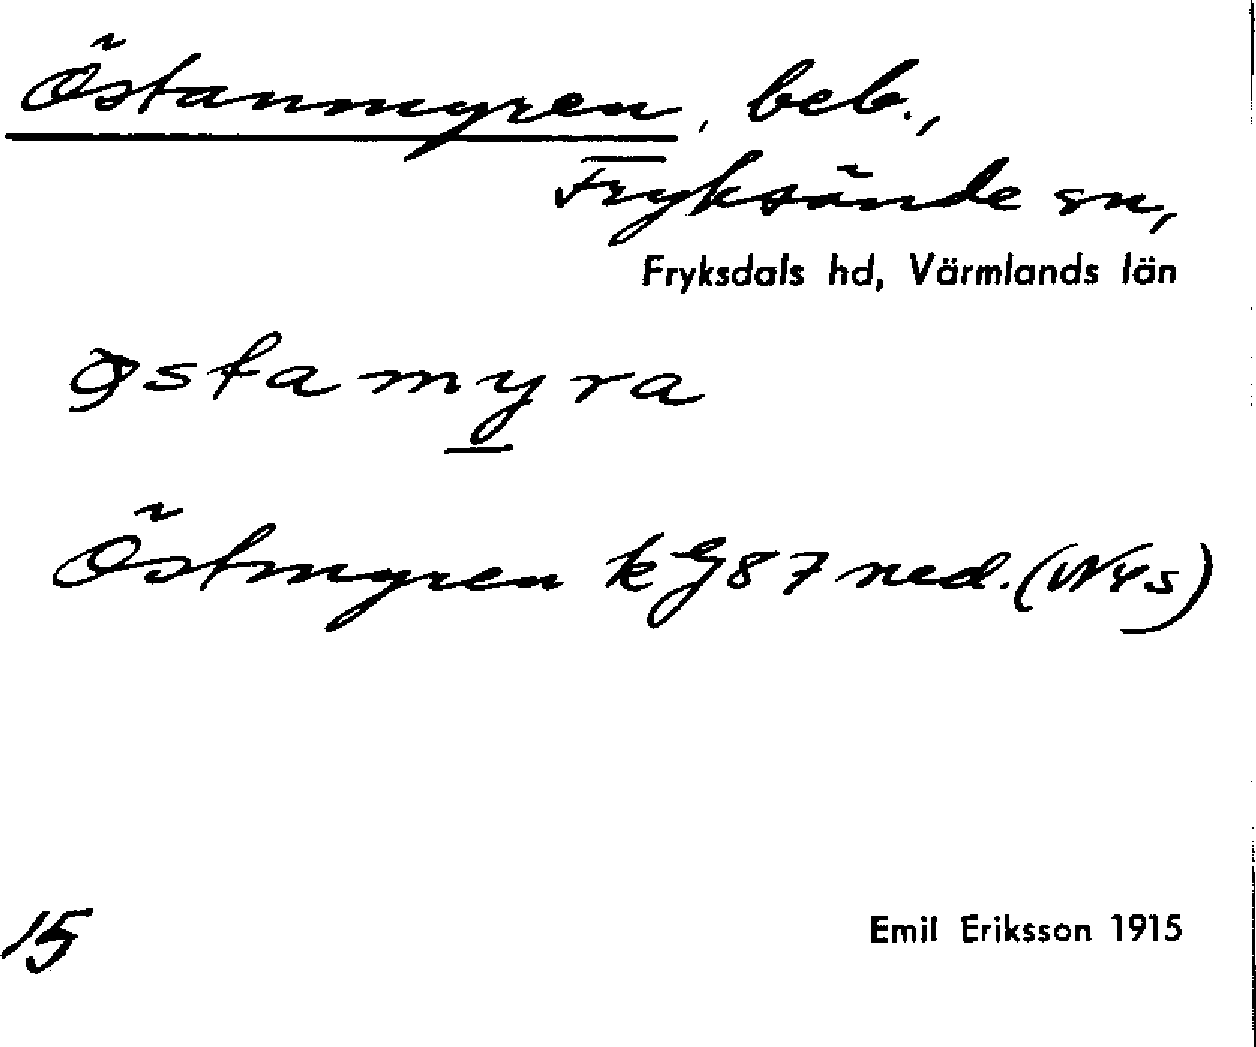 Östanmyren, beb.,
Fryksände sn,
Fryksdals hd, Värmlands län
østamyra
Östmyren k 87 ned.
15
Emil Eriksson 1915